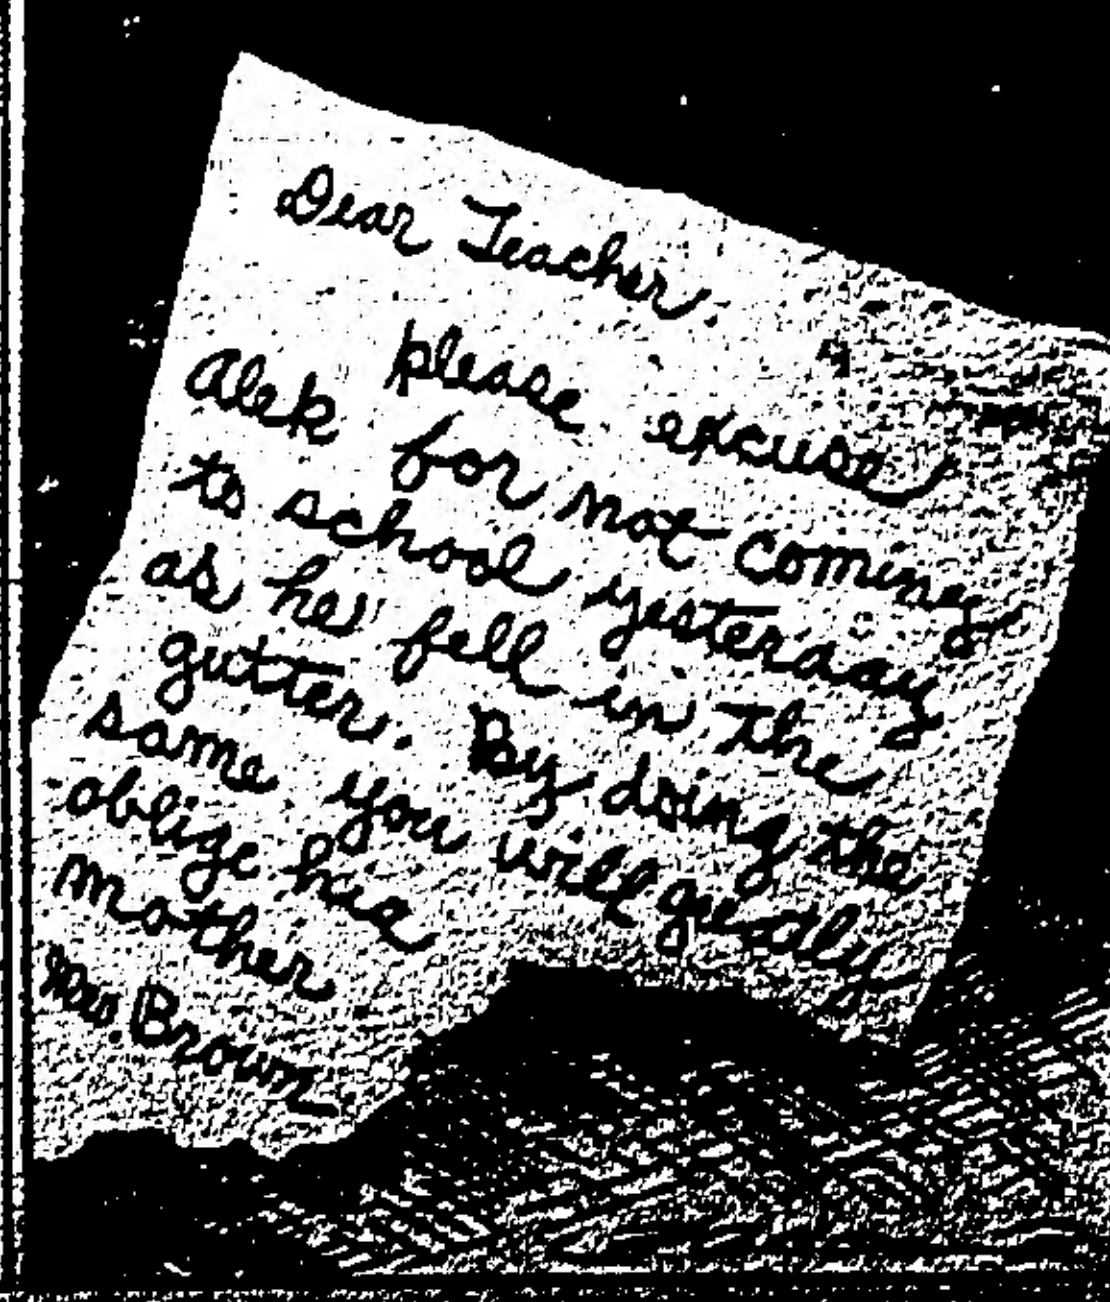 Dear Teacher:
please excuse
Alek for not coming
to school yesterday
as he fell in the
gutter. By doing the
same you will gretly
oblige his
mother
Mrs. Brown